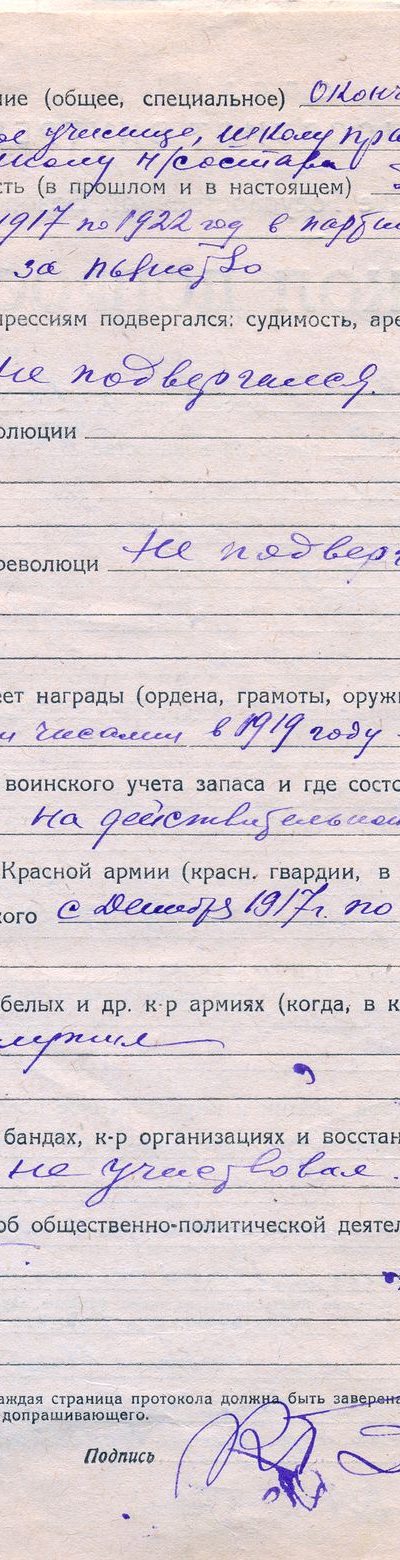 ние (общее, специальное) Оконч
ое училище, школу пра
школу н/состава
сть (в прошлом и в настоящем)
1917 по 1922 год в парти
за пьянство
прессиям подвергался: судимость, аре
не подвергался.
олюции
революци Не подверг
еет награды (ордена, грамоты, оружи
и часами в 1919 году
воинского учета запаса и где состо
на действительной
Красной армии (красн. гвардии, в
кого с Декабря 1917г. по
белых и др. к-р армиях (когда, в к
служил
бандах, к-р организациях и восстан
не участвовал.
об общественно-политической деятел
аждая страница протокола должна быть заверена
допрашивающего.
Подпись